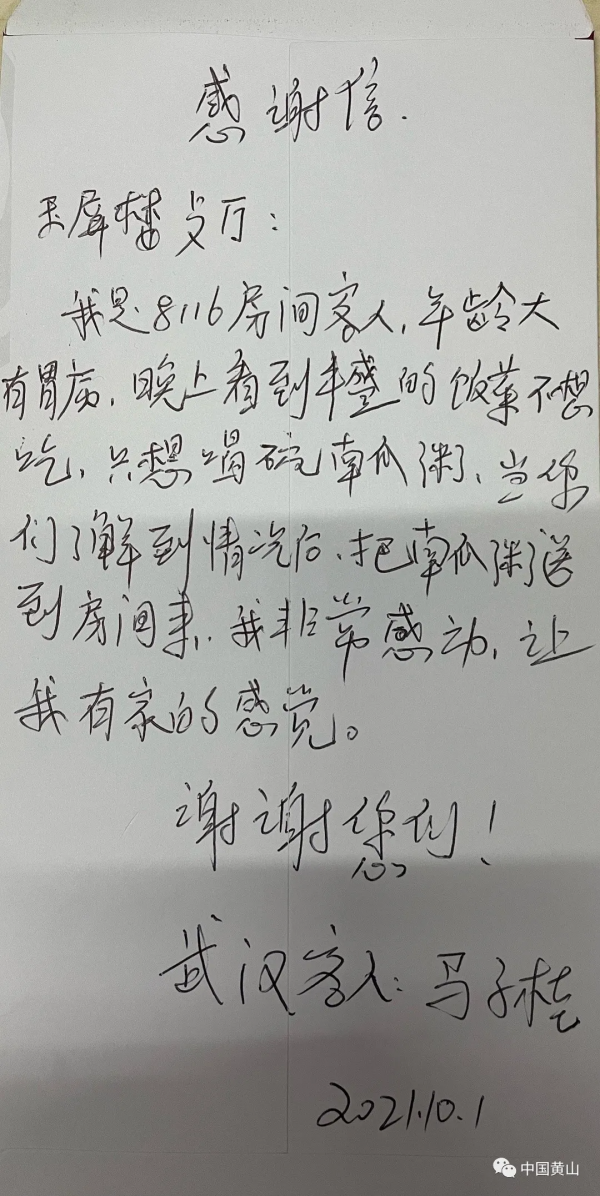 感谢信.
玉屏楼文厅:
我是8116房间客人,年龄大
有胃病,晚上看到丰盛的饭菜不想
吃,只想喝碗南瓜粥,当你
们了解到情况后,把南瓜粥送
到房间来,我非常感动,让
我有家的感觉。
谢谢您们!
武汉客人:马子桂
2021.10.1
中国黄山